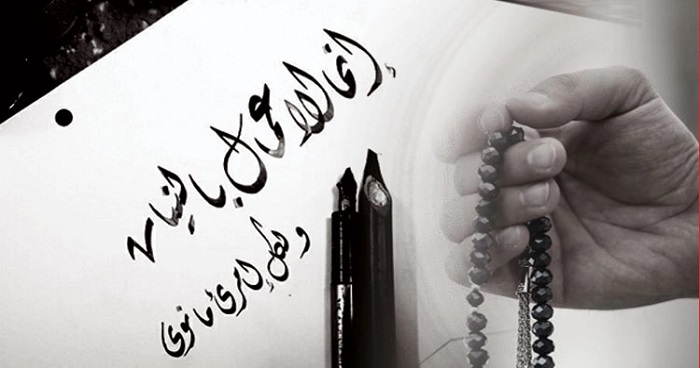 إنما الاعمال بالنيات
و لكل امرئ ما نوى